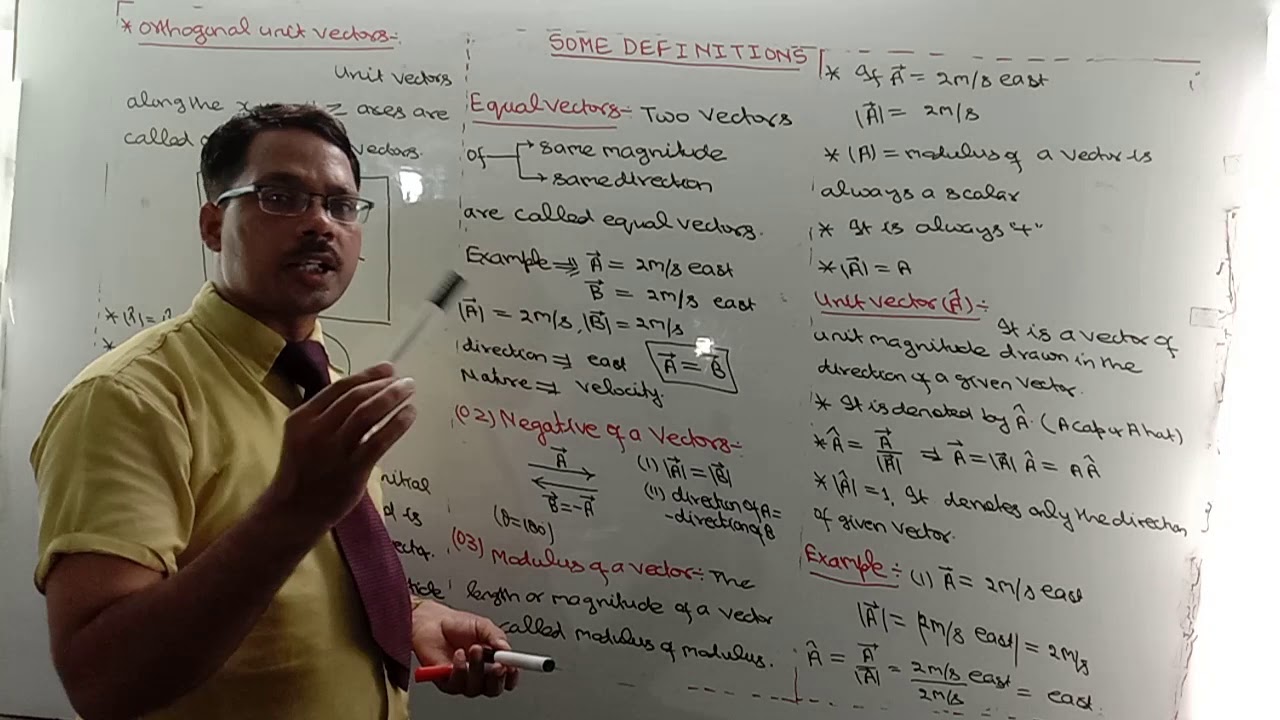 * Orthogonal unit vectors:-
Unit vectors
along the x z axes are
called vectors.
* |
*
nitial
d is
ector.
ticle
SOME DEFINITIONS
Equal vectors:- Two vectors
of → same magnitude
→ same direction
are called equal vectors.
Example ⇒ A⃗ = 2m/s east
B⃗ = 2m/s east
|A⃗| = 2m/s, |B⃗| = 2m/s
direction ⇒ east A⃗ = B⃗
Nature ⇒ velocity.
(02) Negative of a Vectors:-
A⃗ (I) |A⃗| = |B⃗|
B⃗ = -A⃗ (II) direction of A =
- direction of B
(θ=180)
(03) Modulus of a vector:- The
length or magnitude of a vector
called modulus of modulus.
* If A⃗ = 2m/s east
|A⃗| = 2m/s
* |A| = modulus of a vector is
always a scalar
* It is always "+"
* |A⃗| = A
Unit vector (Â):- It is a vector of
unit magnitude drawn in the
direction of a given vector.
* It is denoted by Â. (A cap or A hat)
* Â = A⃗/|A⃗| ⇒ A⃗ = |A⃗| Â = A Â
* |Â| = 1, It denotes only the direction
of given vector.
Example:- (1) A⃗ = 2m/s east
|A⃗| = |2m/s east| = 2m/s
Â = A⃗/|A⃗| = 2m/s east/2m/s = east.